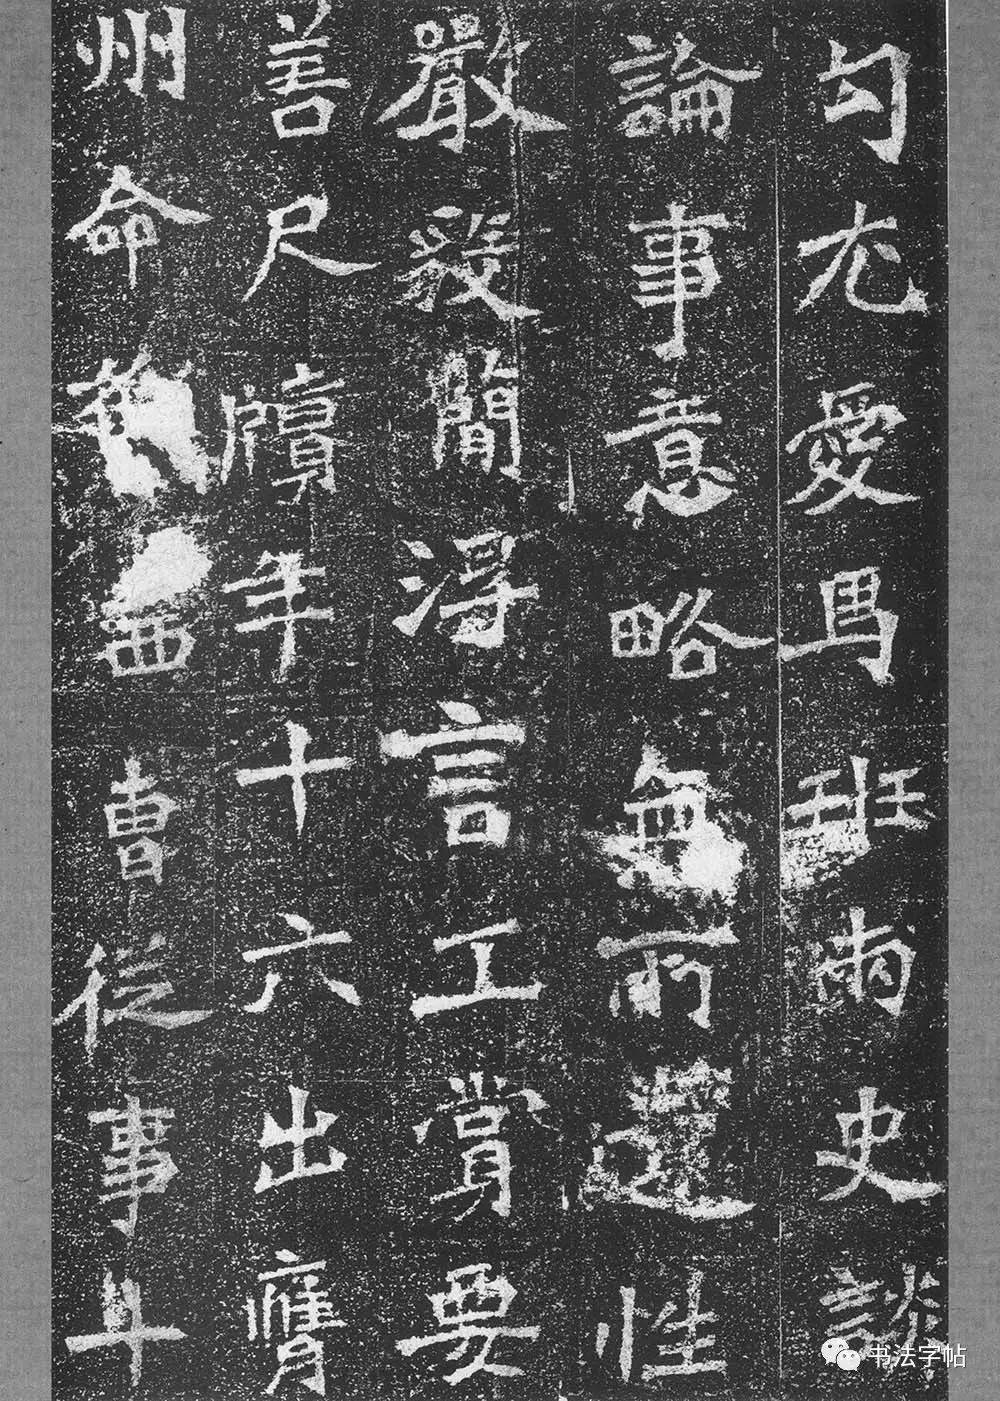 勾尤愛馬班兩史談
論事意略無所遺性
嚴毅簡浮言工賞要
善尺牘年十六出膺
州命西曹從事
书法字帖